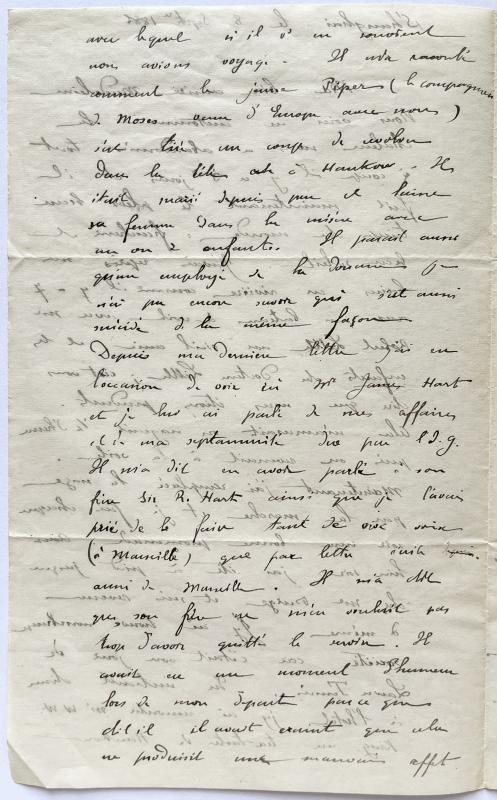 avec lequel si il s'en souvient
nous avions voyagé. Il m'a raconté
comment le jeune Piper (le compagnon
de Moses venu d'Europe avec nous)
s'est tiré un coup de revolver
dans la tête à Hankow. Il
était marié depuis peu et laisse
sa femme dans la misère avec
un ou 2 enfants. Il parait aussi
qu'un employé de la douane je
n'ai pu encore savoir qui s'est aussi
suicidé de la même façon
Depuis ma dernière lettre j'ai eu
l'occasion de voir ici Mr James Hart
et je lui ai parlé de mes affaires
et de ma septannuité due par l'I.G.
Il m'a dit en avoir parlé à son
frère Sir R. Hart ainsi que je l'avais
prié de le faire tant de vive voix
(à Marseille) que par lettre écrite
aussi de Marseille. Il m'a dit
que son frère ne m'en voulait pas
trop d'avoir quitté le service. Il
avait eu un moment d'humeur
lors de mon départ parce que
dit il il avait craint que cela
ne produisit une mauvais effet